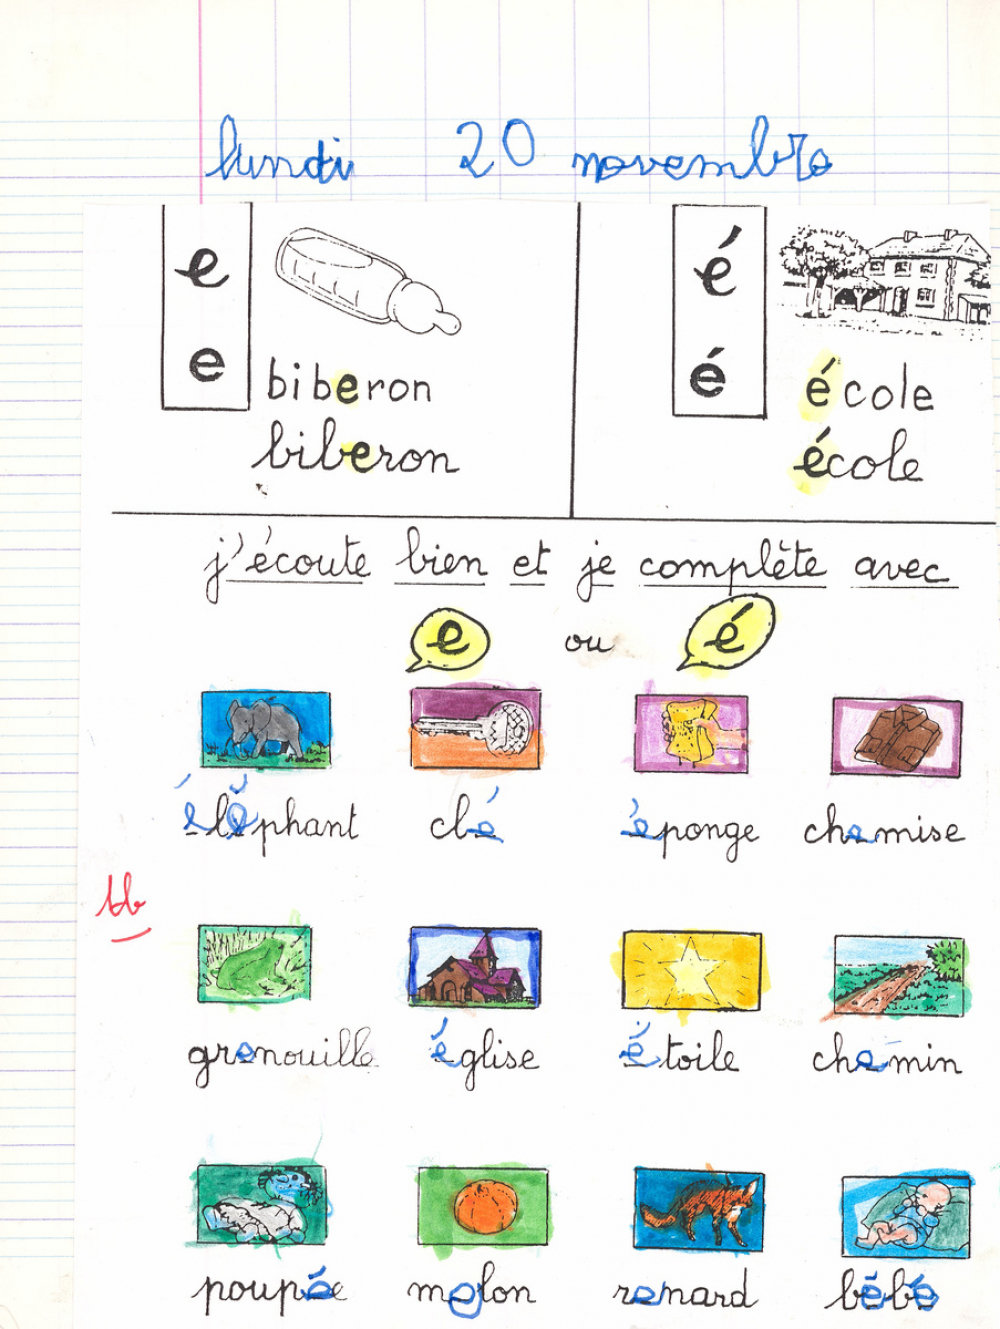 lundi 20 novembre
e é
e é
biberon école
biberon école
j'écoute bien et je complète avec
e ou é
éléphant clé éponge chemise
tb
grenouille église étoile chemin
poupée melon renard bébé